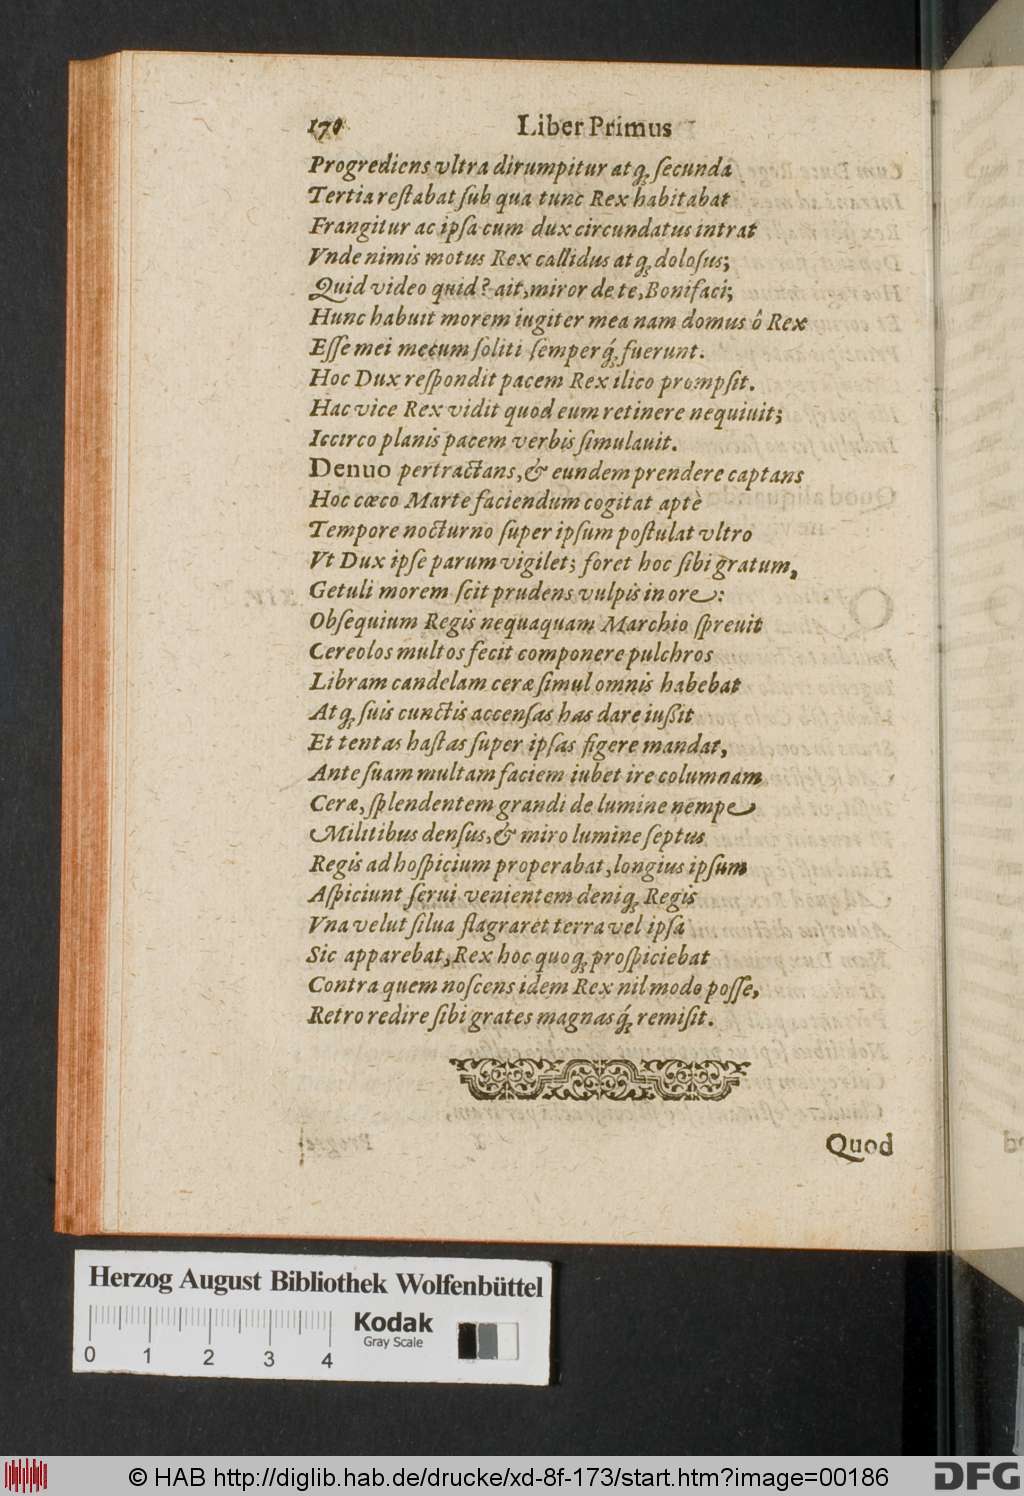 170 Liber Primus
Progrediens vltra dirumpitur atq́; secunda
Tertia restabat sub qua tunc Rex habitabat
Frangitur ac ipsa cum dux circundatus intrat
Vnde nimis motus Rex callidus atq; dolosus;
Quid video quid? ait, miror de te, Bonifaci;
Hunc habuit morem iugiter mea nam domus ô Rex
Esse mei mecum soliti semper q́; fuerunt.
Hoc Dux respondit pacem Rex ilico prompsit.
Hac vice Rex vidit quod eum retinere nequiuit;
Iccirco planis pacem verbis simulauit.
Denuo pertractans, & eundem prendere captans
Hoc cæco Marte faciendum cogitat aptè
Tempore nocturno super ipsum postulat vltro
Vt Dux ipse parum vigilet; foret hoc sibi gratum,
Getuli morem scit prudens vulpis in ore:
Obsequium Regis nequaquam Marchio spreuit
Cereolos multos fecit componere pulchros
Libram candelam ceræ simul omnis habebat
Atq; suis cunctis accensas has dare iußit
Et tentas hastas super ipsas figere mandat,
Ante suam multam faciem iubet ire columnam
Ceræ, splendentem grandi de lumine nempe
Militibus densus, & miro lumine septus
Regis ad hospicium properabat, longius ipsum
Aspiciunt serui venientem deniq; Regis
Vna velut silua flagraret terra vel ipsa
Sic apparebat, Rex hoc quoq; prospiciebat
Contra quem noscens idem Rex nil modo posse,
Retro redire sibi grates magnas q́; remisit.
Quod
Herzog August Bibliothek Wolfenbüttel
Kodak
Gray Scale
0 1 2 3 4
© HAB http://diglib.hab.de/drucke/xd-8f-173/start.htm?image=00186
DFG